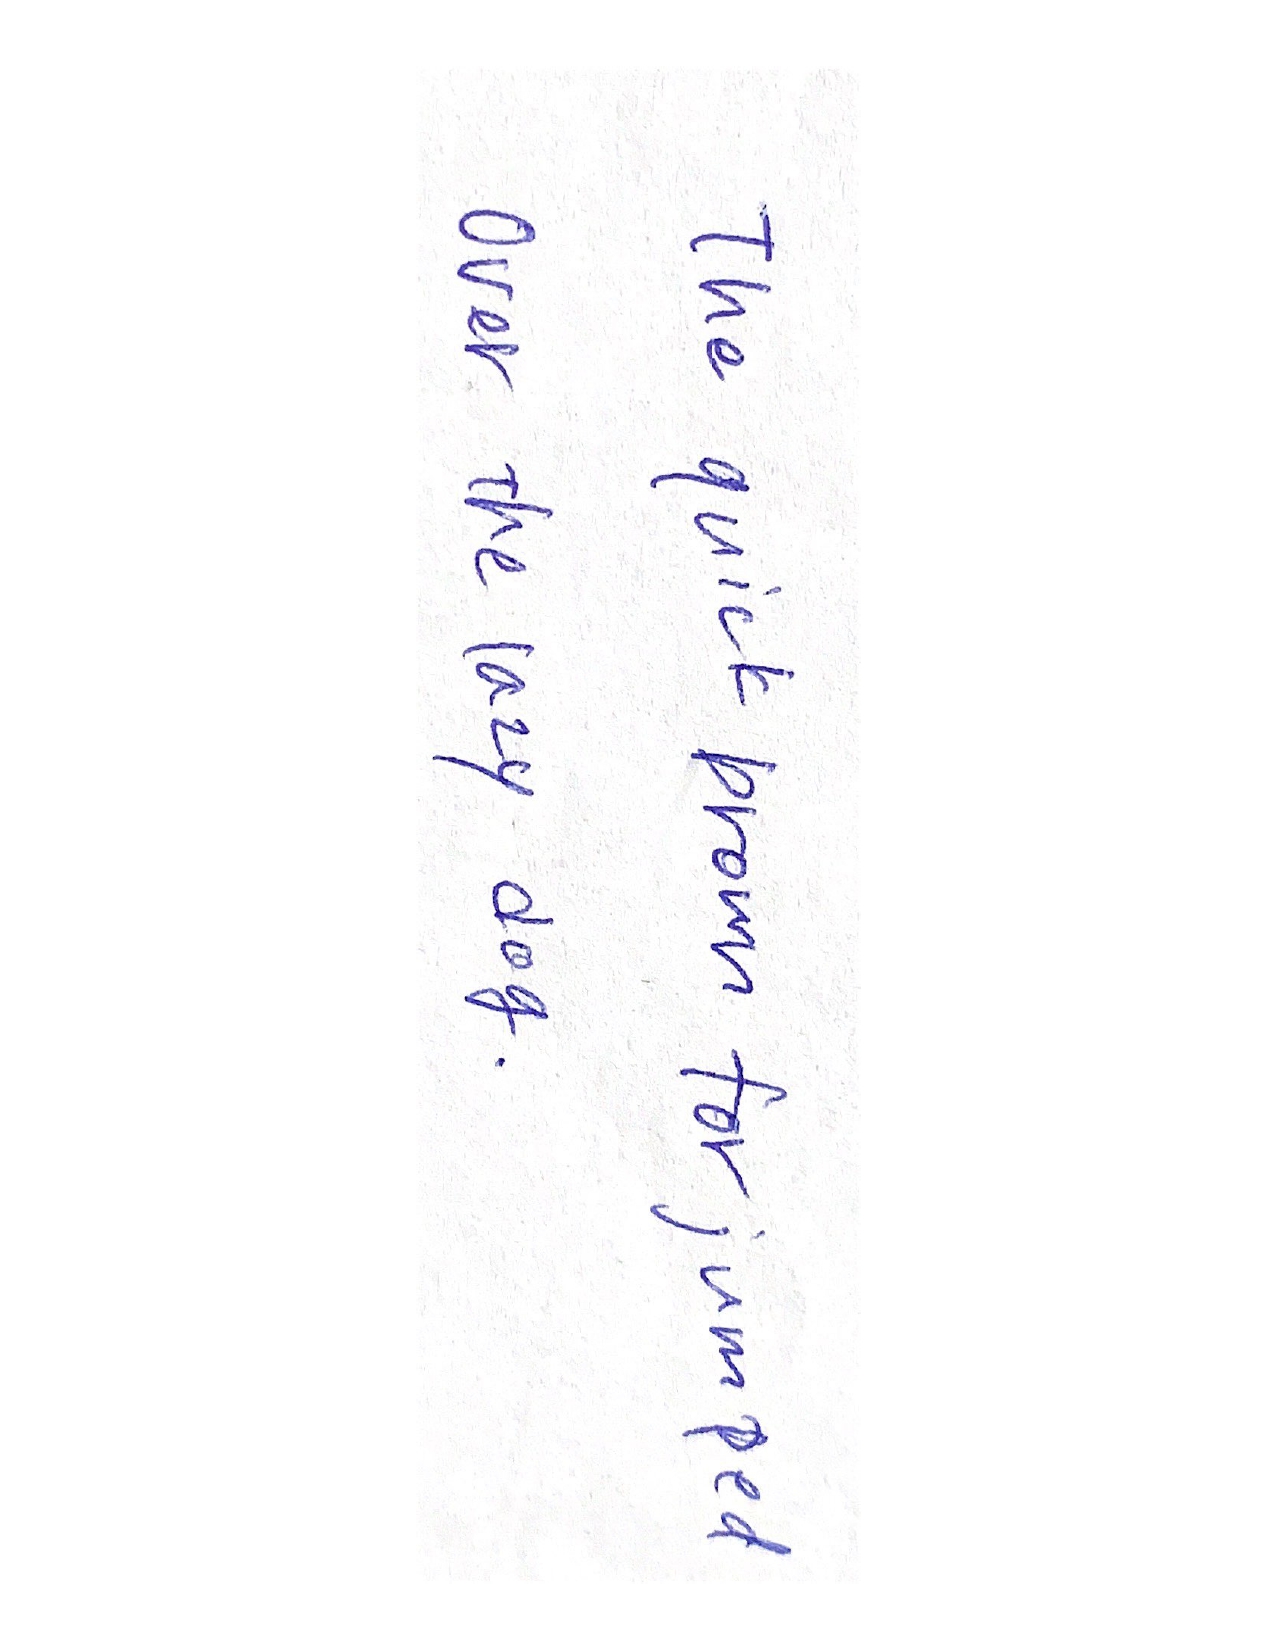 The quick brown for jumped
Over the lazy dog.